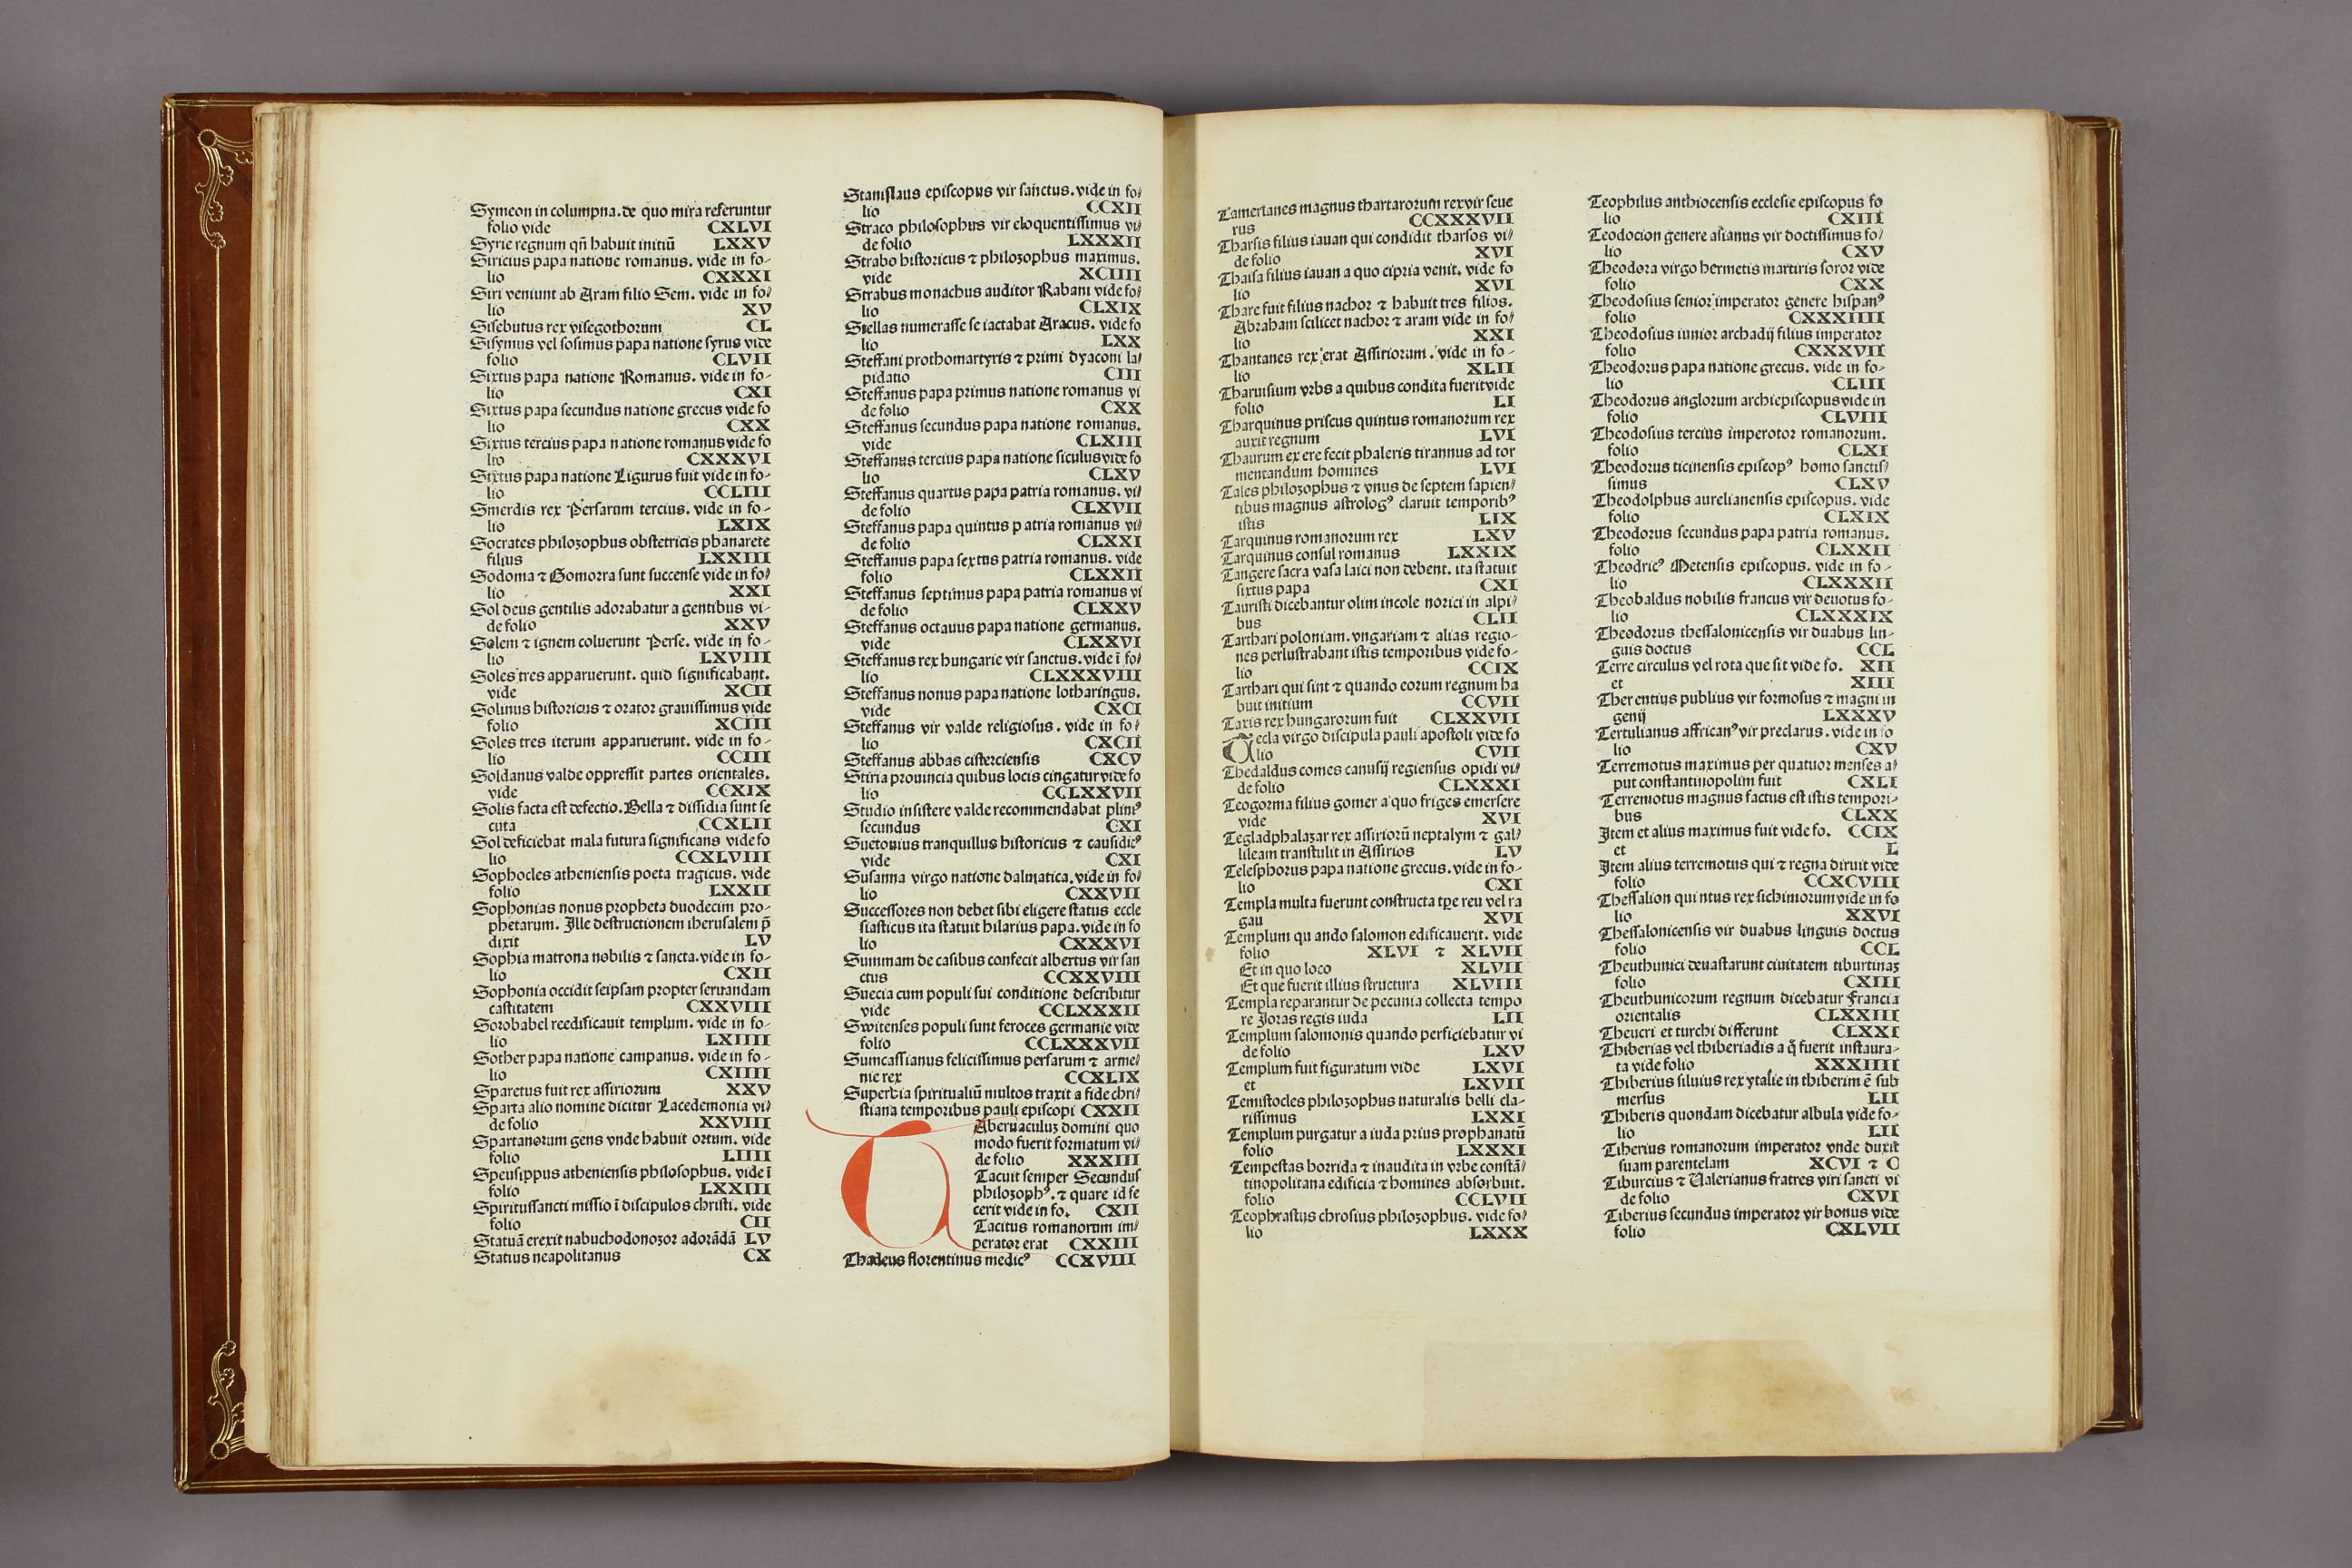 Symeon in columpna. de quo mira referuntur
folio vide CXLVI
Syrie regnum qñ habuit initiū LXXV
Siricius papa natione romanus. vide in fo-
lio CXXXI
Siri veniunt ab Aram filio Sem. vide in fo/
lio XV
Sisebutus rex visegothorum CL
Sisymus vel sosimus papa natione syrus vide
folio CLVII
Sixtus papa natione Romanus. vide in fo-
lio CXI
Sixtus papa secundus natione grecus vide fo
lio CXX
Sixtus tercius papa natione romanus vide fo
lio CXXXVI
Sixtus papa natione Ligurus fuit vide in fo-
lio CCLIII
Smerdis rex Persarum tercius. vide in fo-
lio LXIX
Socrates philozophus obstetricis phanarete
filius LXXIII
Sodoma ⁊ Gomorra sunt succense vide in fo/
lio XXI
Sol deus gentilis adorabatur a gentibus vi-
de folio XXV
Solem ⁊ ignem coluerunt Perse. vide in fo-
lio LXVIII
Soles tres apparuerunt. quid significabant.
vide XCII
Solinus historicus ⁊ orator grauissimus vide
folio XCIII
Soles tres iterum apparuerunt. vide in fo-
lio CCIII
Soldanus valde oppressit partes orientales.
vide CCXIX
Solis facta est defectio. Bella ⁊ dissidia sunt se
cuta CCXLII
Sol deficiebat mala futura significans vide fo
lio CCXLVIII
Sophocles atheniensis poeta tragicus. vide
folio LXXII
Sophonias nonus propheta duodecim pro-
phetarum. Ille destructionem iherusalem p̄
dixit LV
Sophia matrona nobilis ⁊ sancta. vide in fo-
lio CXII
Sophonia occidit seipsam propter seruandam
castitatem CXXVIII
Sorobabel reedificauit templum. vide in fo-
lio LXIIII
Sother papa natione campanus. vide in fo-
lio CXIIII
Sparetus fuit rex assiriorum XXV
Sparta alio nomine dicitur Lacedemonia vi/
de folio XXVIII
Spartanorum gens vnde habuit ortum. vide
folio LIIII
Speusippus atheniensis philosophus. vide ī
folio LXXIII
Spiritussancti missio ī discipulos christi. vide
folio CII
Statuā erexit nabuchodonozor adorādā LV
Statius neapolitanus CX
Stanislaus episcopus vir sanctus. vide in fo/
lio CCXII
Straco philosophus vir eloquentissimus vi/
de folio LXXXII
Strabo historicus ⁊ philozophus maximus.
vide XCIIII
Strabus monachus auditor Rabani vide fo/
lio CLXIX
Stellas numerasse se iactabat Aracus. vide fo
lio LXX
Steffani prothomartyris ⁊ primi dyaconi la/
pidatio CIII
Steffanus papa primus natione romanus vi
de folio CXX
Steffanus secundus papa natione romanus.
vide CLXIII
Steffanus tercius papa natione siculus vide fo
lio CLXV
Steffanus quartus papa patria romanus. vi/
de folio CLXVII
Steffanus papa quintus patria romanus vi/
de folio CLXXI
Steffanus papa sextus patria romanus. vide
folio CLXXII
Steffanus septimus papa patria romanus vi
de folio CLXXV
Steffanus octauus papa natione germanus.
vide CLXXVI
Steffanus rex hungarie vir sanctus. vide ī fo/
lio CLXXXVIII
Steffanus nonus papa natione lotharingus.
vide CXCI
Steffanus vir valde religiosus. vide in fo/
lio CXCII
Steffanus abbas cisterciensis CXCV
Stiria prouincia quibus locis cingatur vide fo
lio CCLXXVII
Studio insistere valde recommendabat pliniꝰ
secundus CXI
Suetonius tranquillus historicus ⁊ causidicꝰ
vide CXI
Susanna virgo natione dalmatica. vide in fo/
lio CXXVII
Successores non debet sibi eligere status eccle
siasticus ita statuit hilarius papa. vide in fo
lio CXXXVI
Summam de casibus confecit albertus vir san
ctus CCXXVIII
Suecia cum populi sui conditione describitur
vide CCLXXXII
Switenses populi sunt feroces germanie vide
folio CCLXXXVII
Sumcassianus felicissimus persarum ⁊ arme/
nie rex CCXLIX
Superbia spiritualiū multos traxit a fide chri/
stiana temporibus pauli episcopi CXXII
TAbernaculuꝫ domini quo
modo fuerit formatum vi/
de folio XXXIII
Tacuit semper Secundus
philozophꝰ. ⁊ quare id fe
cerit vide in fo. CXII
Tacitus romanorum im/
perator erat CXXIII
Thadeus florentinus medicꝰ CCXVIII
Tamerlanes magnus thartarorum rex vir seue
rus CCXXXVII
Tharsis filius iauan qui condidit tharsos vi/
de folio XVI
Thaisa filius iauan a quo cipria venit. vide fo
lio XVI
Thare fuit filius nachor ⁊ habuit tres filios.
Abraham scilicet nachor ⁊ aram vide in fo/
lio XXI
Thantanes rex erat Assiriorum. vide in fo-
lio XLII
Tharuisium vrbs a quibus condita fuerit vide
folio LI
Tharquinus priscus quintus romanorum rex
auxit regnum LVI
Thaurum ex ere fecit phaleris tirannus ad tor
mentandum homines LVI
Tales philozophus ⁊ vnus de septem sapien/
tibus magnus astrologꝰ claruit temporibꝰ
istis LIX
Tarquinus romanorum rex LXV
Tarquinus consul romanus LXXIX
Tangere sacra vasa laici non debent. ita statuit
sixtus papa CXI
Tauristi dicebantur olim incole norici in alpi/
bus CLII
Tarthari poloniam. vngariam ⁊ alias regio-
nes perlustrabant istis temporibus vide fo-
lio CCIX
Tarthari qui sint ⁊ quando eorum regnum ha
buit initium CCVII
Taxis rex hungarorum fuit CLXXVII
Tecla virgo discipula pauli apostoli vide fo
lio CVII
Thedaldus comes canusij regiensus opidi vi/
de folio CLXXXI
Teogorma filius gomer a quo friges emersere
vide XVI
Tegladphalazar rex assiriorū neptalym ⁊ gal/
lileam transtulit in Assirios LV
Telesphorus papa natione grecus. vide in fo-
lio CXI
Templa multa fuerunt constructa tpe reu vel ra
gau XVI
Templum quando salomon edificauerit. vide
folio XLVI ⁊ XLVII
Et in quo loco XLVII
Et que fuerit illius structura XLVIII
Templa reparantur de pecunia collecta tempo
re Joras regis iuda LII
Templum salomonis quando perficiebatur vi
de folio LXV
Templum fuit figuratum vide LXVI
et LXVII
Temistocles philozophus naturalis belli cla-
rissimus LXXI
Templum purgatur a iuda prius prophanatū
folio LXXXI
Tempestas horrida ⁊ inaudita in vrbe constā/
tinopolitana edificia ⁊ homines absorbuit.
folio CCLVII
Teophrastus chrosius philozophus. vide fo/
lio LXXX
Teophilus anthiocensis ecclesie episcopus fo
lio CXIII
Teodocion genere asianus vir doctissimus fo/
lio CXV
Theodora virgo hermetis martiris soror vide
folio CXX
Theodosius senior imperator genere hispanꝰ
folio CXXXIIII
Theodosius iunior archadij filius imperator
folio CXXXVII
Theodorus papa natione grecus. vide in fo-
lio CLIII
Theodorus anglorum archiepiscopus vide in
folio CLVIII
Theodosius tercius imperotor romanorum.
folio CLXI
Theodorus ticinensis episcopꝰ homo sanctis/
simus CLXV
Theodolphus aurelianensis episcopus. vide
folio CLXIX
Theodorus secundus papa patria romanus.
folio CLXXII
Theodricꝰ Metensis episcopus. vide in fo-
lio CLXXXII
Theobaldus nobilis francus vir deuotus fo-
lio CLXXXIX
Theodorus thessalonicensis vir duabus lin-
guis doctus CCL
Terre circulus vel rota que sit vide fo. XII
et XIII
Therentius publius vir formosus ⁊ magni in
genij LXXXV
Tertulianus affricanꝰ vir preclarus. vide in fo
lio CXV
Terremotus maximus per quatuor menses a/
put constantinopolim fuit CXLI
Terremotus magnus factus est istis tempori-
bus CLXX
Item et alius maximus fuit vide fo. CCIX
et L
Item alius terremotus qui ⁊ regna diruit vide
folio CCXCVIII
Thessalion quintus rex sichimorum vide in fo
lio XXVI
Thessalonicensis vir duabus linguis doctus
folio CCL
Theuthunici deuastarunt ciuitatem tiburtinaꝫ
folio CXIII
Theuthunicorum regnum dicebatur Francia
orientalis CLXXIII
Theucri et turchi differunt CLXXI
Thiberias vel thiberiadis a q̄ fuerit instaura-
ta vide folio XXXIIII
Thiberius siluius rex ytalie in thiberim ē sub
mersus LII
Thiberis quondam dicebatur albula vide fo-
lio LII
Tiberius romanorum imperator vnde duxit
suam parentelam XCVI ⁊ C
Tiburcius ⁊ Valerianus fratres viri sancti vi
de folio CXVI
Tiberius secundus imperator vir bonus vide
folio CXLVII